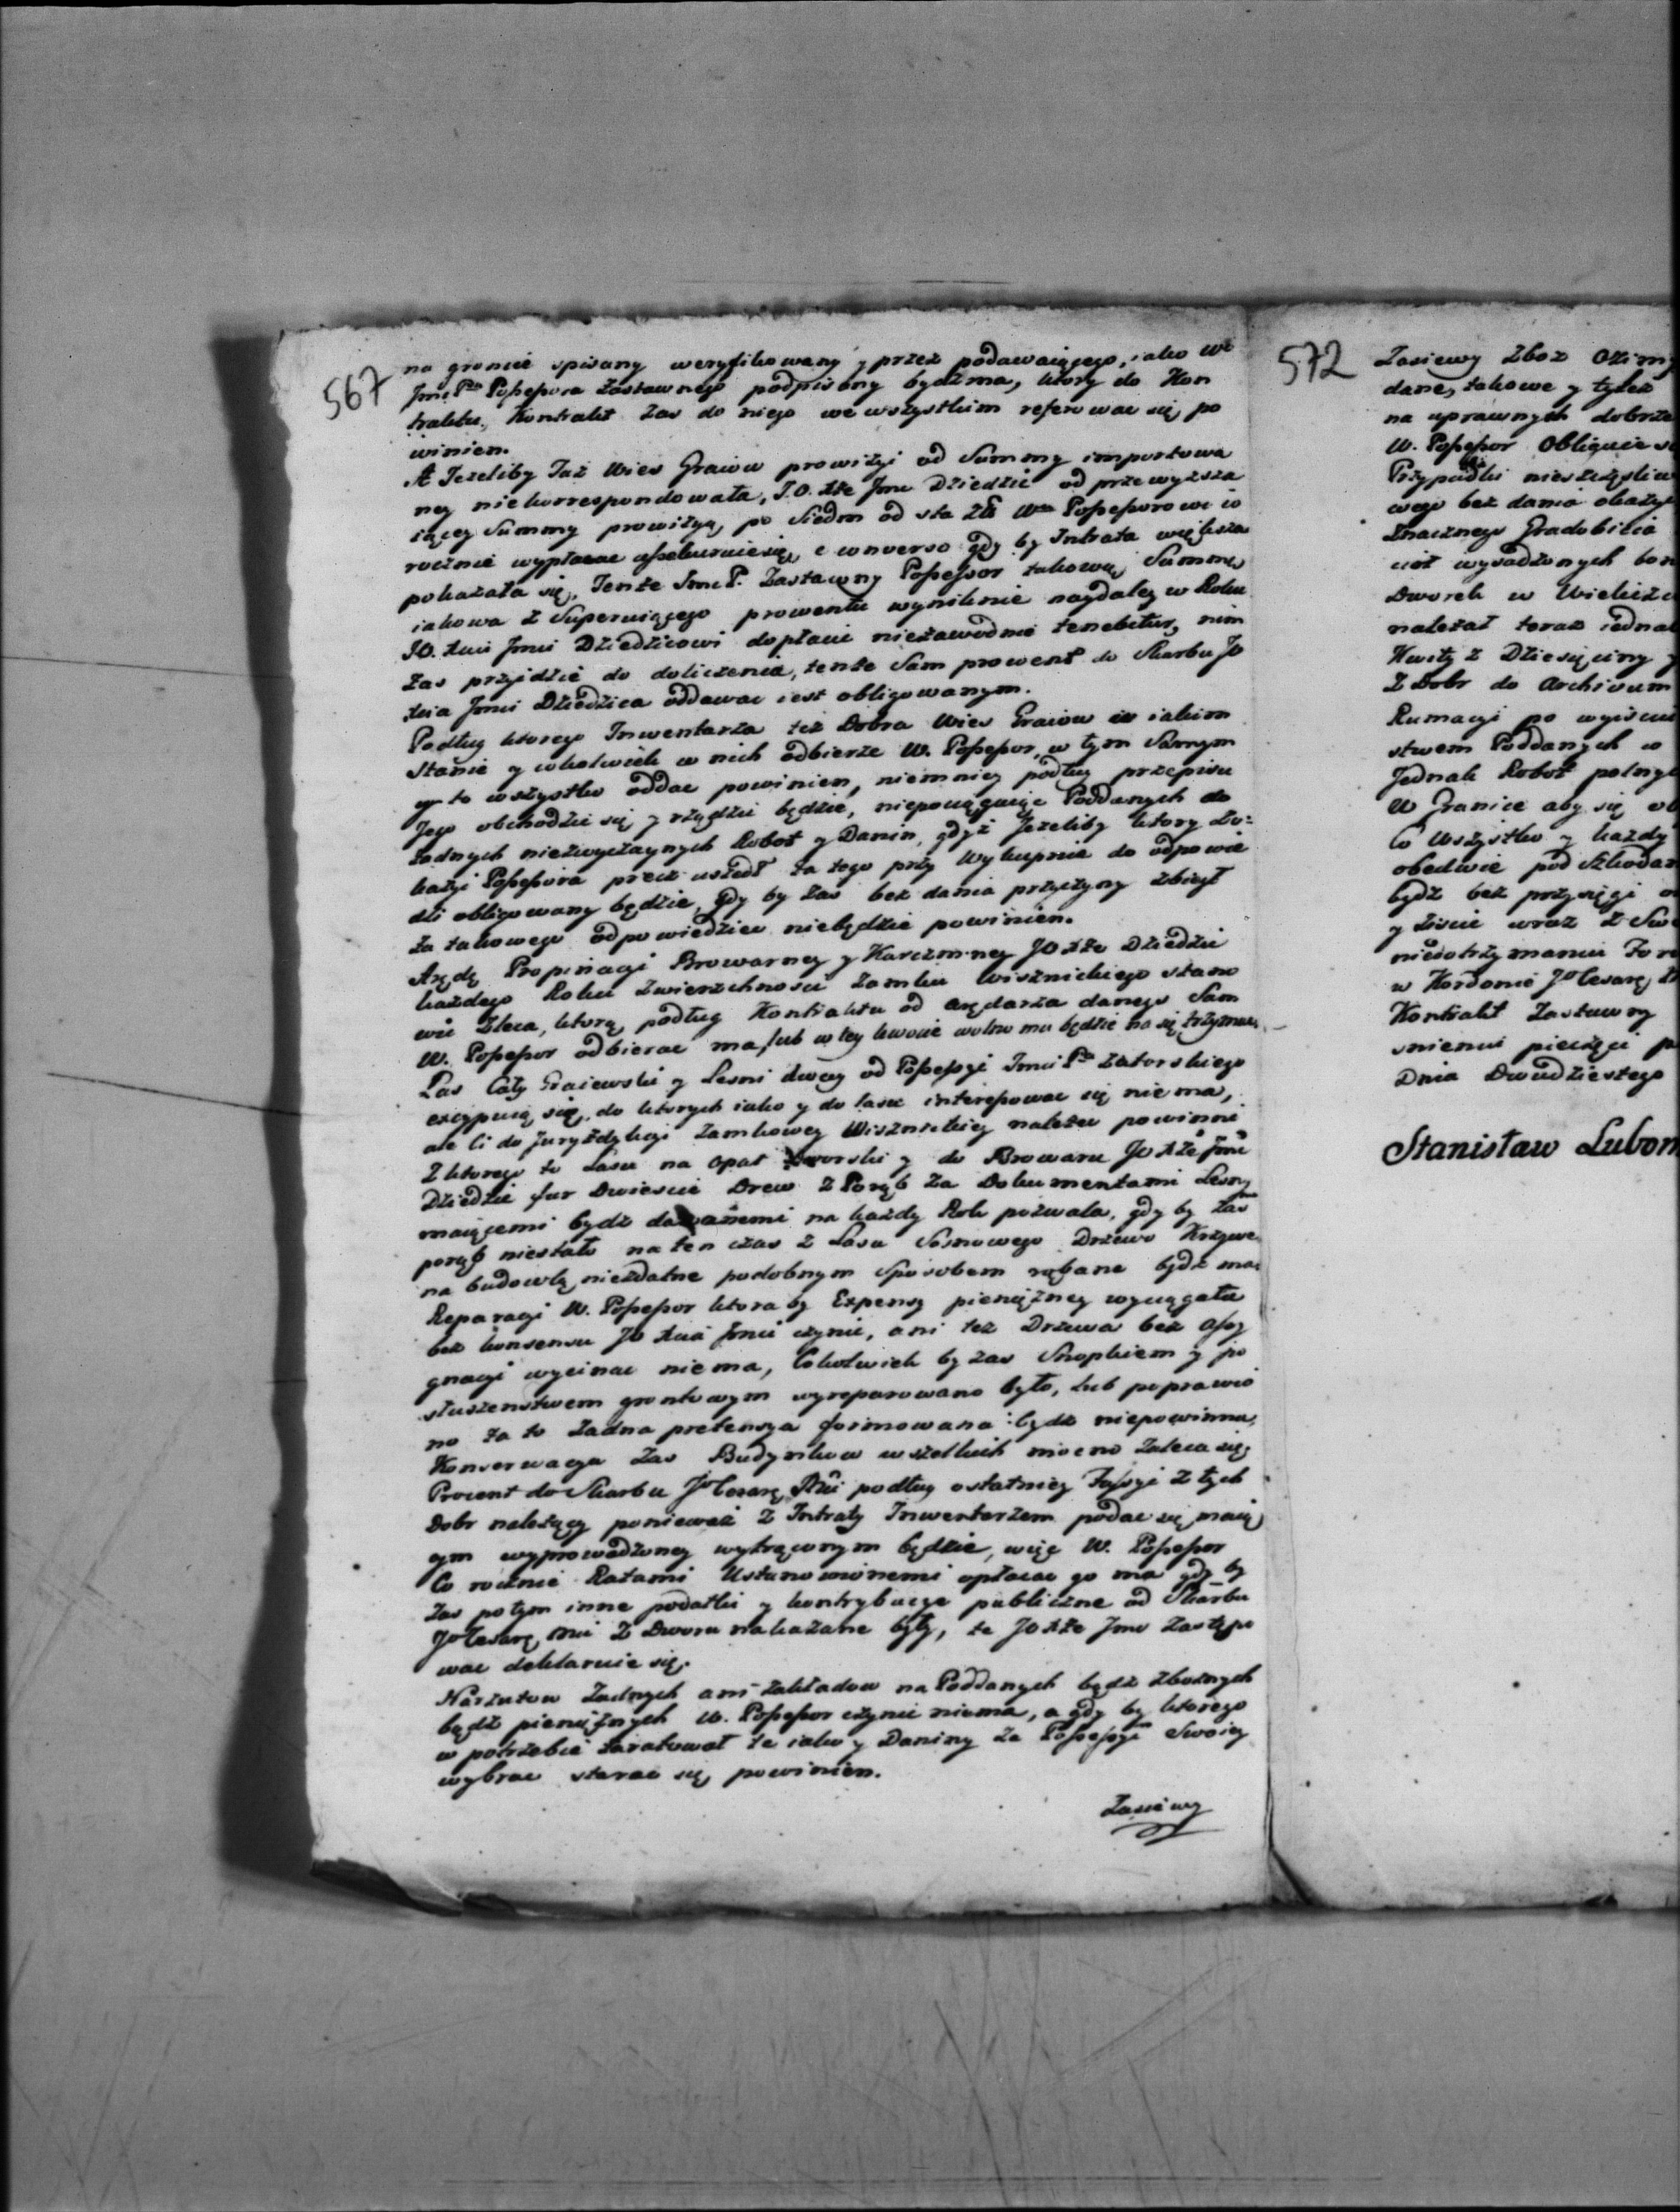 567
na groncie spisany weryfikowany y przez podawaiącego, iako We
Jmci Pa Possessora zastawnego podpisany bydź ma, ktory do Kon
traktu, Kontrakt zas do niego we wszystkim referować się po
winien.
A Jezeliby Taż Wies Graiow prowizyi od Summy importowa
ney niekorrespondowała, J.O. Xże Jmc Dziedzic od przewyższa
iącey Summy prowizyą po Siedm od sta Złł Wmu Possessorowi co
rocznie wypłacac assekuruie się, e converso gdy by Intrata większa
pokazała się, Tenże Jmc P. Zastawny Possessor takową Summę
iakowa z Superuiącego prowentu wyniknie naydaley w Roku
JO. Xciu Jmci Dziedzicowi dopłacic niezawodnie tenebitur, nim
zas przyidzie do doliczenia, tenże Sam prowent do Skarbu JO
Xcia Jmci Dziedzica oddawac iest obligowanym.
Podług ktorego Inwentarza też Dobra Wies Graiow w iakim
Stanie y cokolwiek w nich odbierze W. Possessor, w tym Samym
y to wszystko oddac powinien, niemniey podług przepisu
Jego obchodzic się y rządzic będzie, niepociągaiąc Poddanych do
żadnych niezwyczaynych Robot y Danin, gdyż Jezeliby ktory z o-
kazyi Possessora precz uszedł za tego przy Wykupnie do odpowie
dzi obligowany będzie, gdy by zas bez dania przyczyny zbiegł
za takowego odpowiedziec niebędzie powinien.
Arędę Propinacyi Browarney y Karczmney JO Xże Dziedzic
każdego Roku Zwierzchnosci Zamku Wisznickiego stano
wic zleca, ktorą podług Kontraktu od arędarza danego Sam
W. Possessor odbierac ma, lub w tey kwocie wolno mu będzie na się trzymac.
Las Cały Graiewski y Lesni dway od Possessyi Jmci Pa Zatorskiego
excypuią się, do ktorych iako y do lasu interessowac się niema,
ale ci do Juryzdykcyi Zamkowey Wisznickiey należec powinni
Z ktorego to Lasu na opał Dworski y do Browaru JO Xże Jmc
Dziedzic fur Dwiescie Drew z Porąb za Dokumentami Lesny
maiącemi bydz dawanemi na każdy Rok pozwala, gdy by zas
porąb niestało na ten czas z Lasu Sosnowego Drzewo Krzywe
na budowlą niezdatne podobnym Sposobem rąbane bydź ma.
Reparacyi W. Possessor ktora by Expensy pieniężney wyciągała
bez konsensu JO Xcia Jmci czynic, ani też Drzewa bez assy
gnacyi wycinac niema, Cokolwiek by zas Snopkiem y po
słuszenstwem grontowym wyreparowano było, lub poprawio
no za to żadna pretensya formowana bydz niepowinna,
Konserwacya zas Budynkow wszelkich mocno zaleca się.
Procent do Skarbu JO Cesarz Mci podług ostatniey Fassyi z tych
Dobr należący ponieważ z Intraty Inwentarzem podac się maią
cym wyprowadzoney wytrąconym będzie, więc W. Possessor
Co rocznie Ratami Ustanowionemi opłacac go ma gdy by
zas potym inne podatki y kontrybucye publiczne od Skarbu
JO Cesarz Mci z Dworu nakazane były, te JO Xże Jmc Zastępo
wac deklaruie się.
Narzutow żadnych ani zakładow na Poddanych bądź zbożnych
bądź pieniężnych W. Possessor czynic niema, a gdy by ktorego
w potrzebie zaratował te iako y Daniny za Possessyi Swoiey
wybrac starac się powinien.
Zasiewy
572
Zasiewy Zboz Ozimy
dane, takowe y tylez
na uprawnych dobrze
W. Possessor Obliguie się
Przypadki nieszczęsliw
wego bez dania okazyi
Znacznego Gradobicia
ciot wysadzonych bon
Dworek w Wieliczce
należał teraz iednak
Kwity z Dziesięciny y
z Dobr do Archivum
Rumacyi po wyisciu
stwem Poddanych w
Jednak Robot polnych
W Granice aby się
Co Wszystko y każdy
obodwie pod Szkodam
bydz bez przysięgi
y ziscic wraz z Swe
niedotrzymaniu For
w Kordonie JO Cesarz
Kontrakt Zastawny
snieniu pieczęci p
Dnia Dwudziestego
Stanisław Lubom